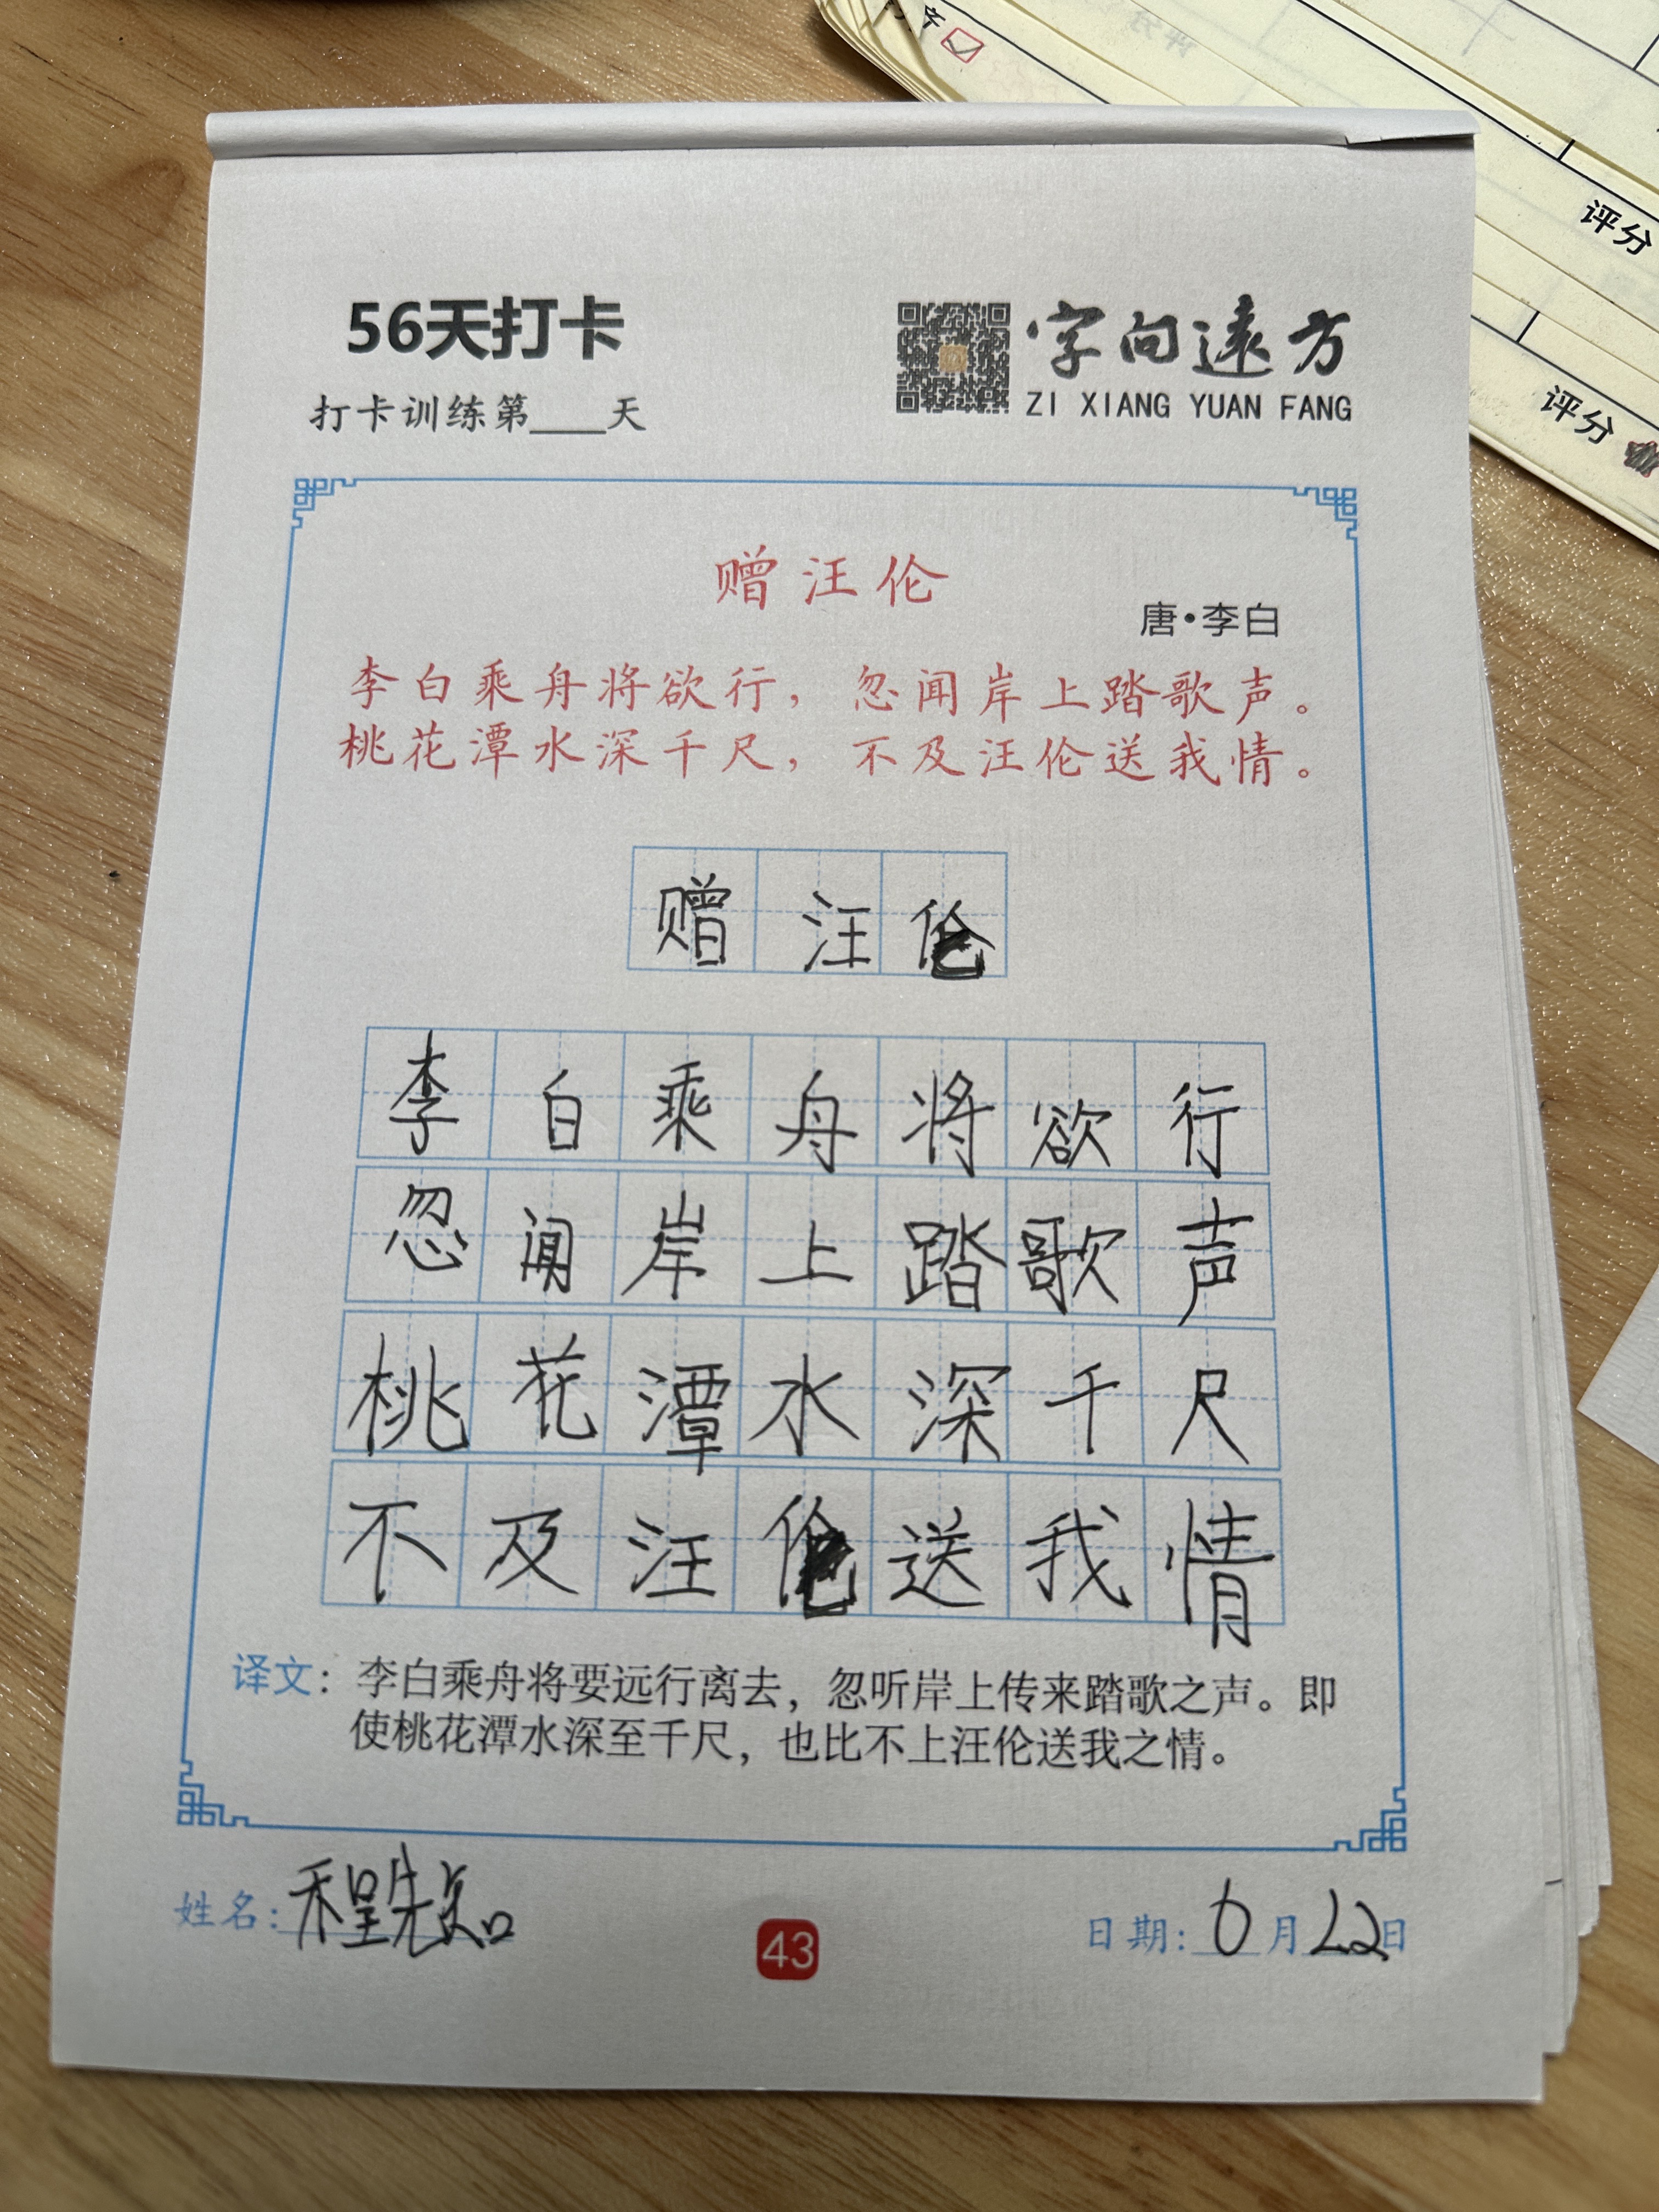 评分
评分
56天打卡
打卡训练第____天
字向远方
ZI XIANG YUAN FANG
赠汪伦
唐·李白
李白乘舟将欲行，忽闻岸上踏歌声。
桃花潭水深千尺，不及汪伦送我情。
赠汪伦
李白乘舟将欲行
忽闻岸上踏歌声
桃花潭水深千尺
不及汪伦送我情
译文：李白乘舟将要远行离去，忽听岸上传来踏歌之声。即
使桃花潭水深至千尺，也比不上汪伦送我之情。
姓名：程先知
43
日期：6月22日